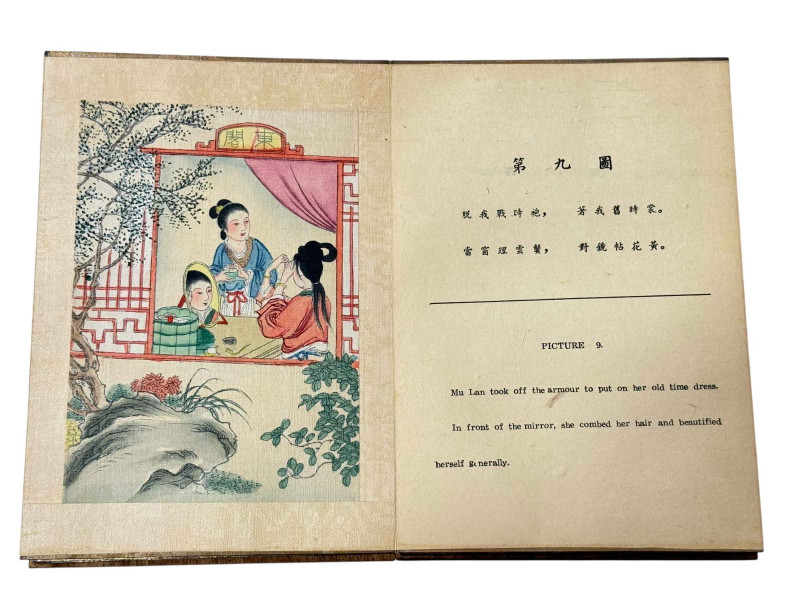 東閣
第九圖
脫我戰時袍， 著我舊時裳。
當窗理雲鬢， 對鏡帖花黃。
PICTURE 9.
Mu Lan took off the armour to put on her old time dress.
In front of the mirror, she combed her hair and beautified
herself generally.